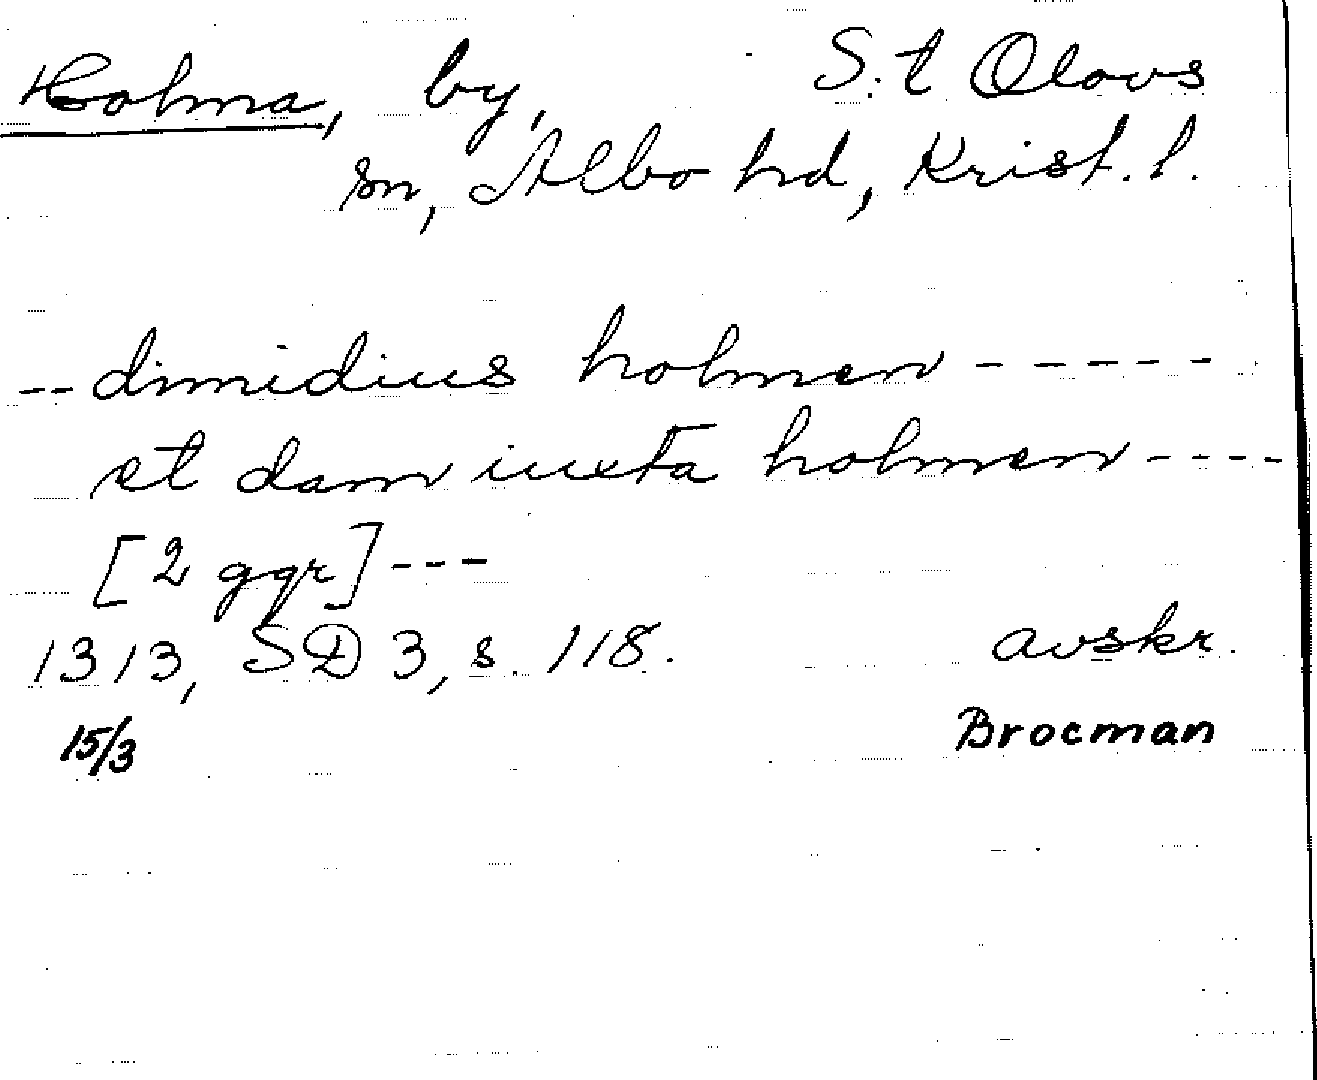 Holma, by, S:t Olovs
sn, Albo hd, Krist. l.
-- dimidius holmen -----
et dam iuxta holmen ----
[2 ggr] ---
1313, SD 3, s. 118. avskr.
15/3 Brocman